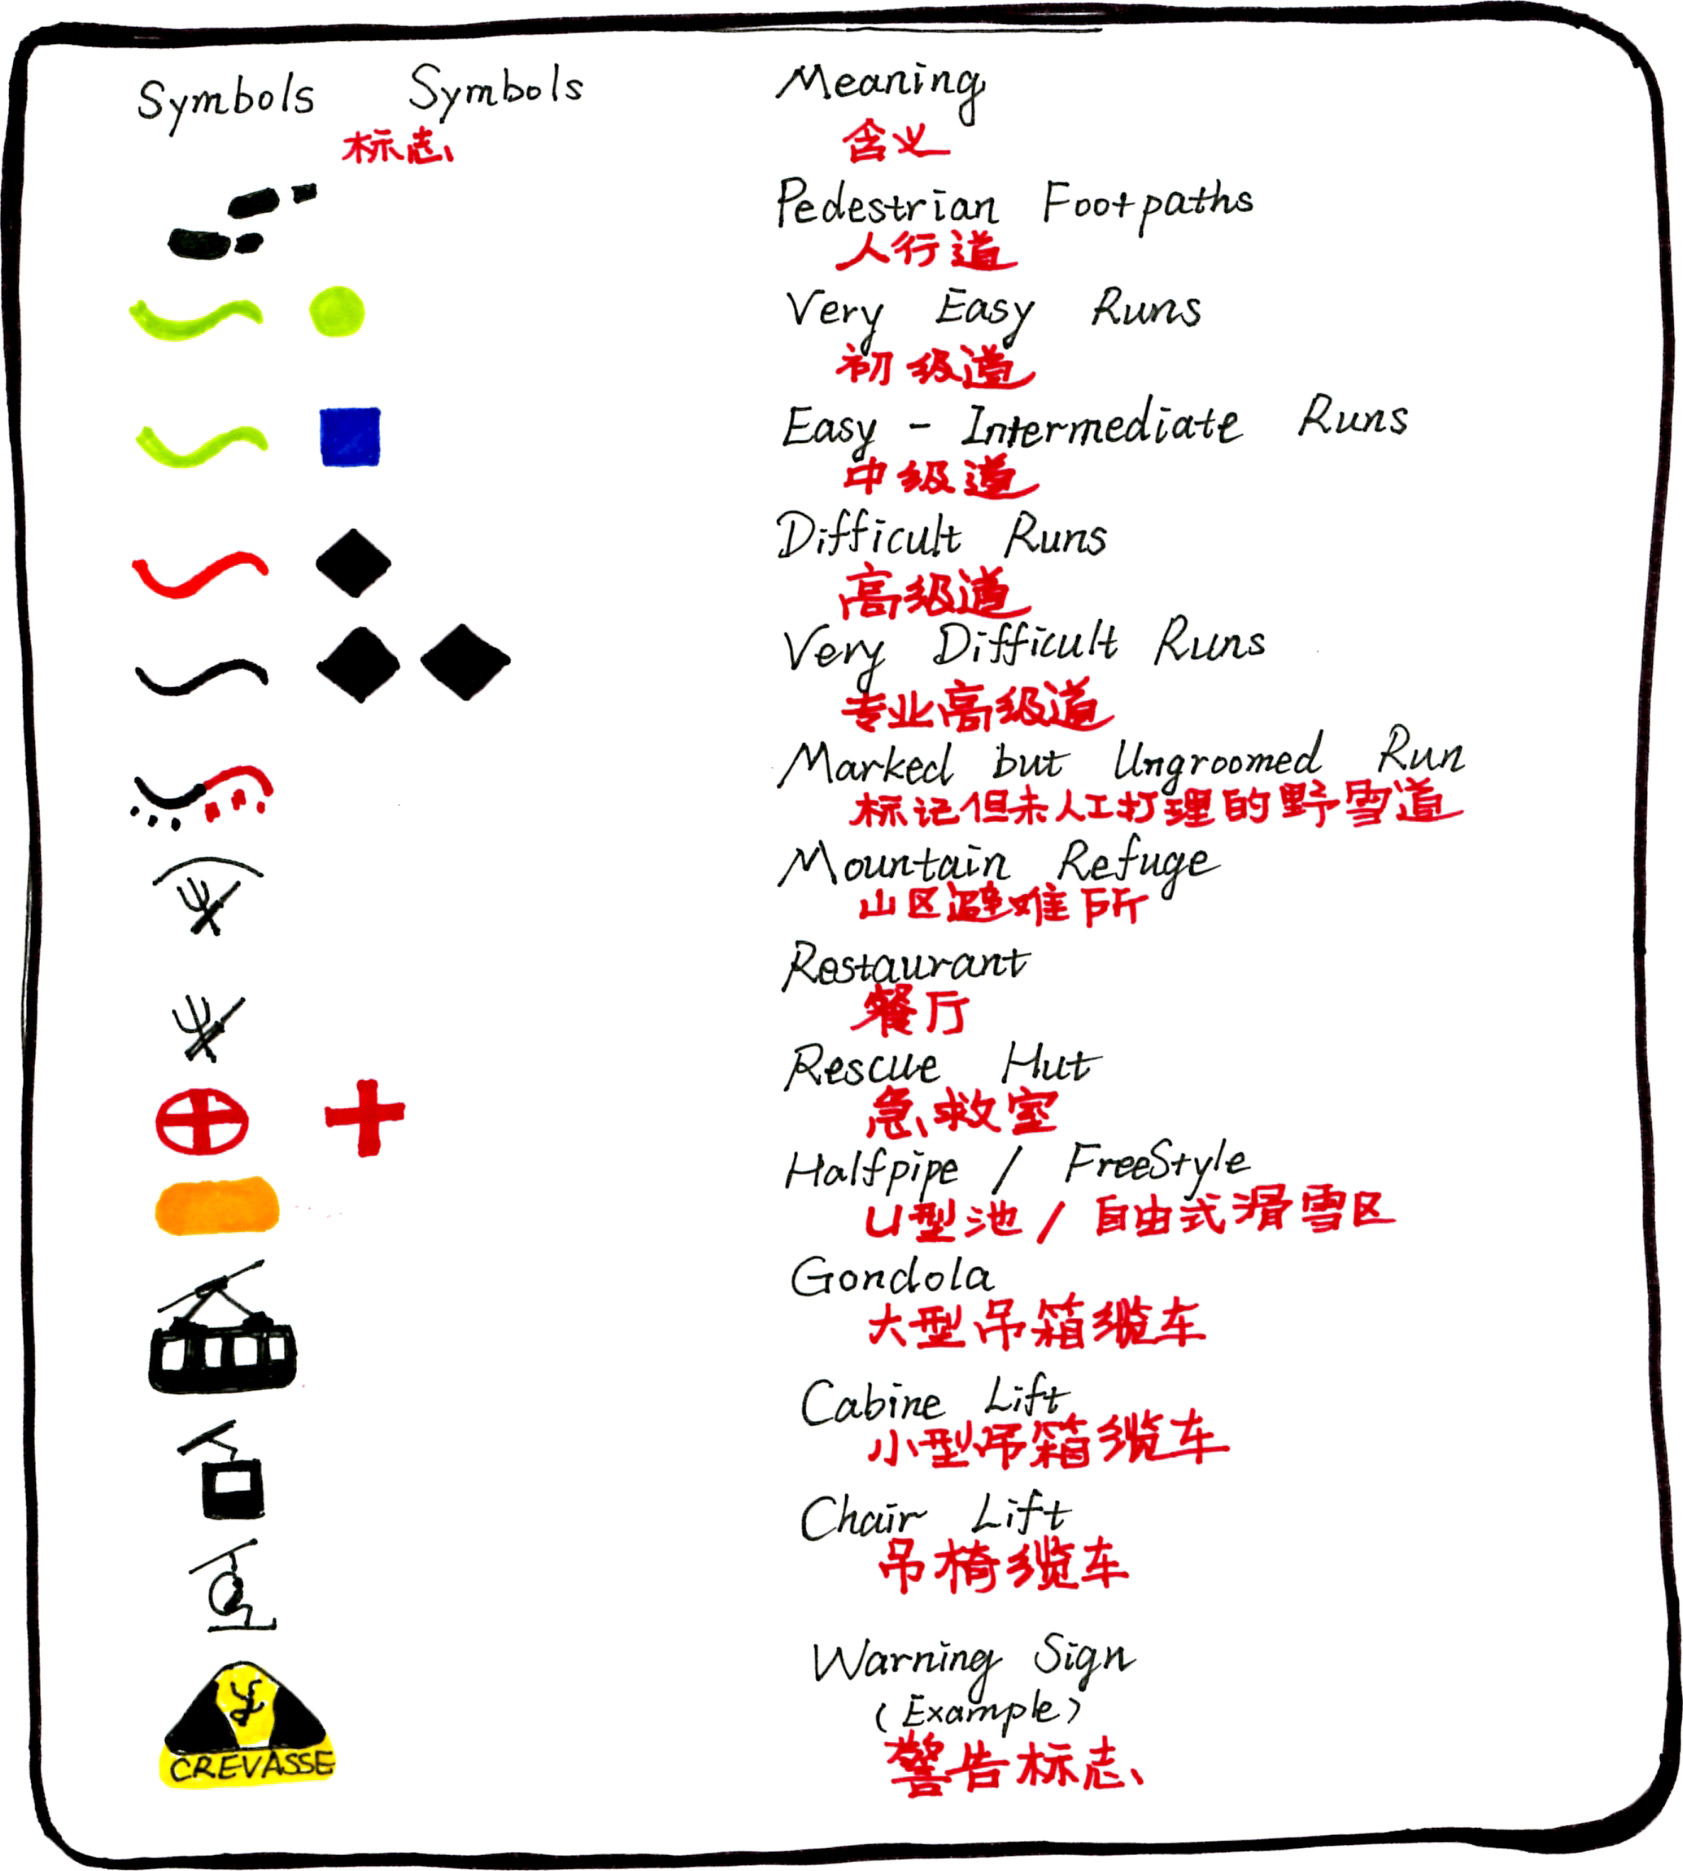 Symbols Symbols Meaning
标志 含义
Pedestrian Footpaths
人行道
Very Easy Runs
初级道
Easy - Intermediate Runs
中级道
Difficult Runs
高级道
Very Difficult Runs
专业高级道
Marked but Ungroomed Run
标记但未人工打理的野雪道
Mountain Refuge
山区避难所
Restaurant
餐厅
Rescue Hut
急救室
Halfpipe / FreeStyle
U型池 / 自由式滑雪区
Gondola
大型吊箱缆车
Cabine Lift
小型吊箱缆车
Chair Lift
吊椅缆车
Warning Sign
(Example)
CREVASSE
警告标志